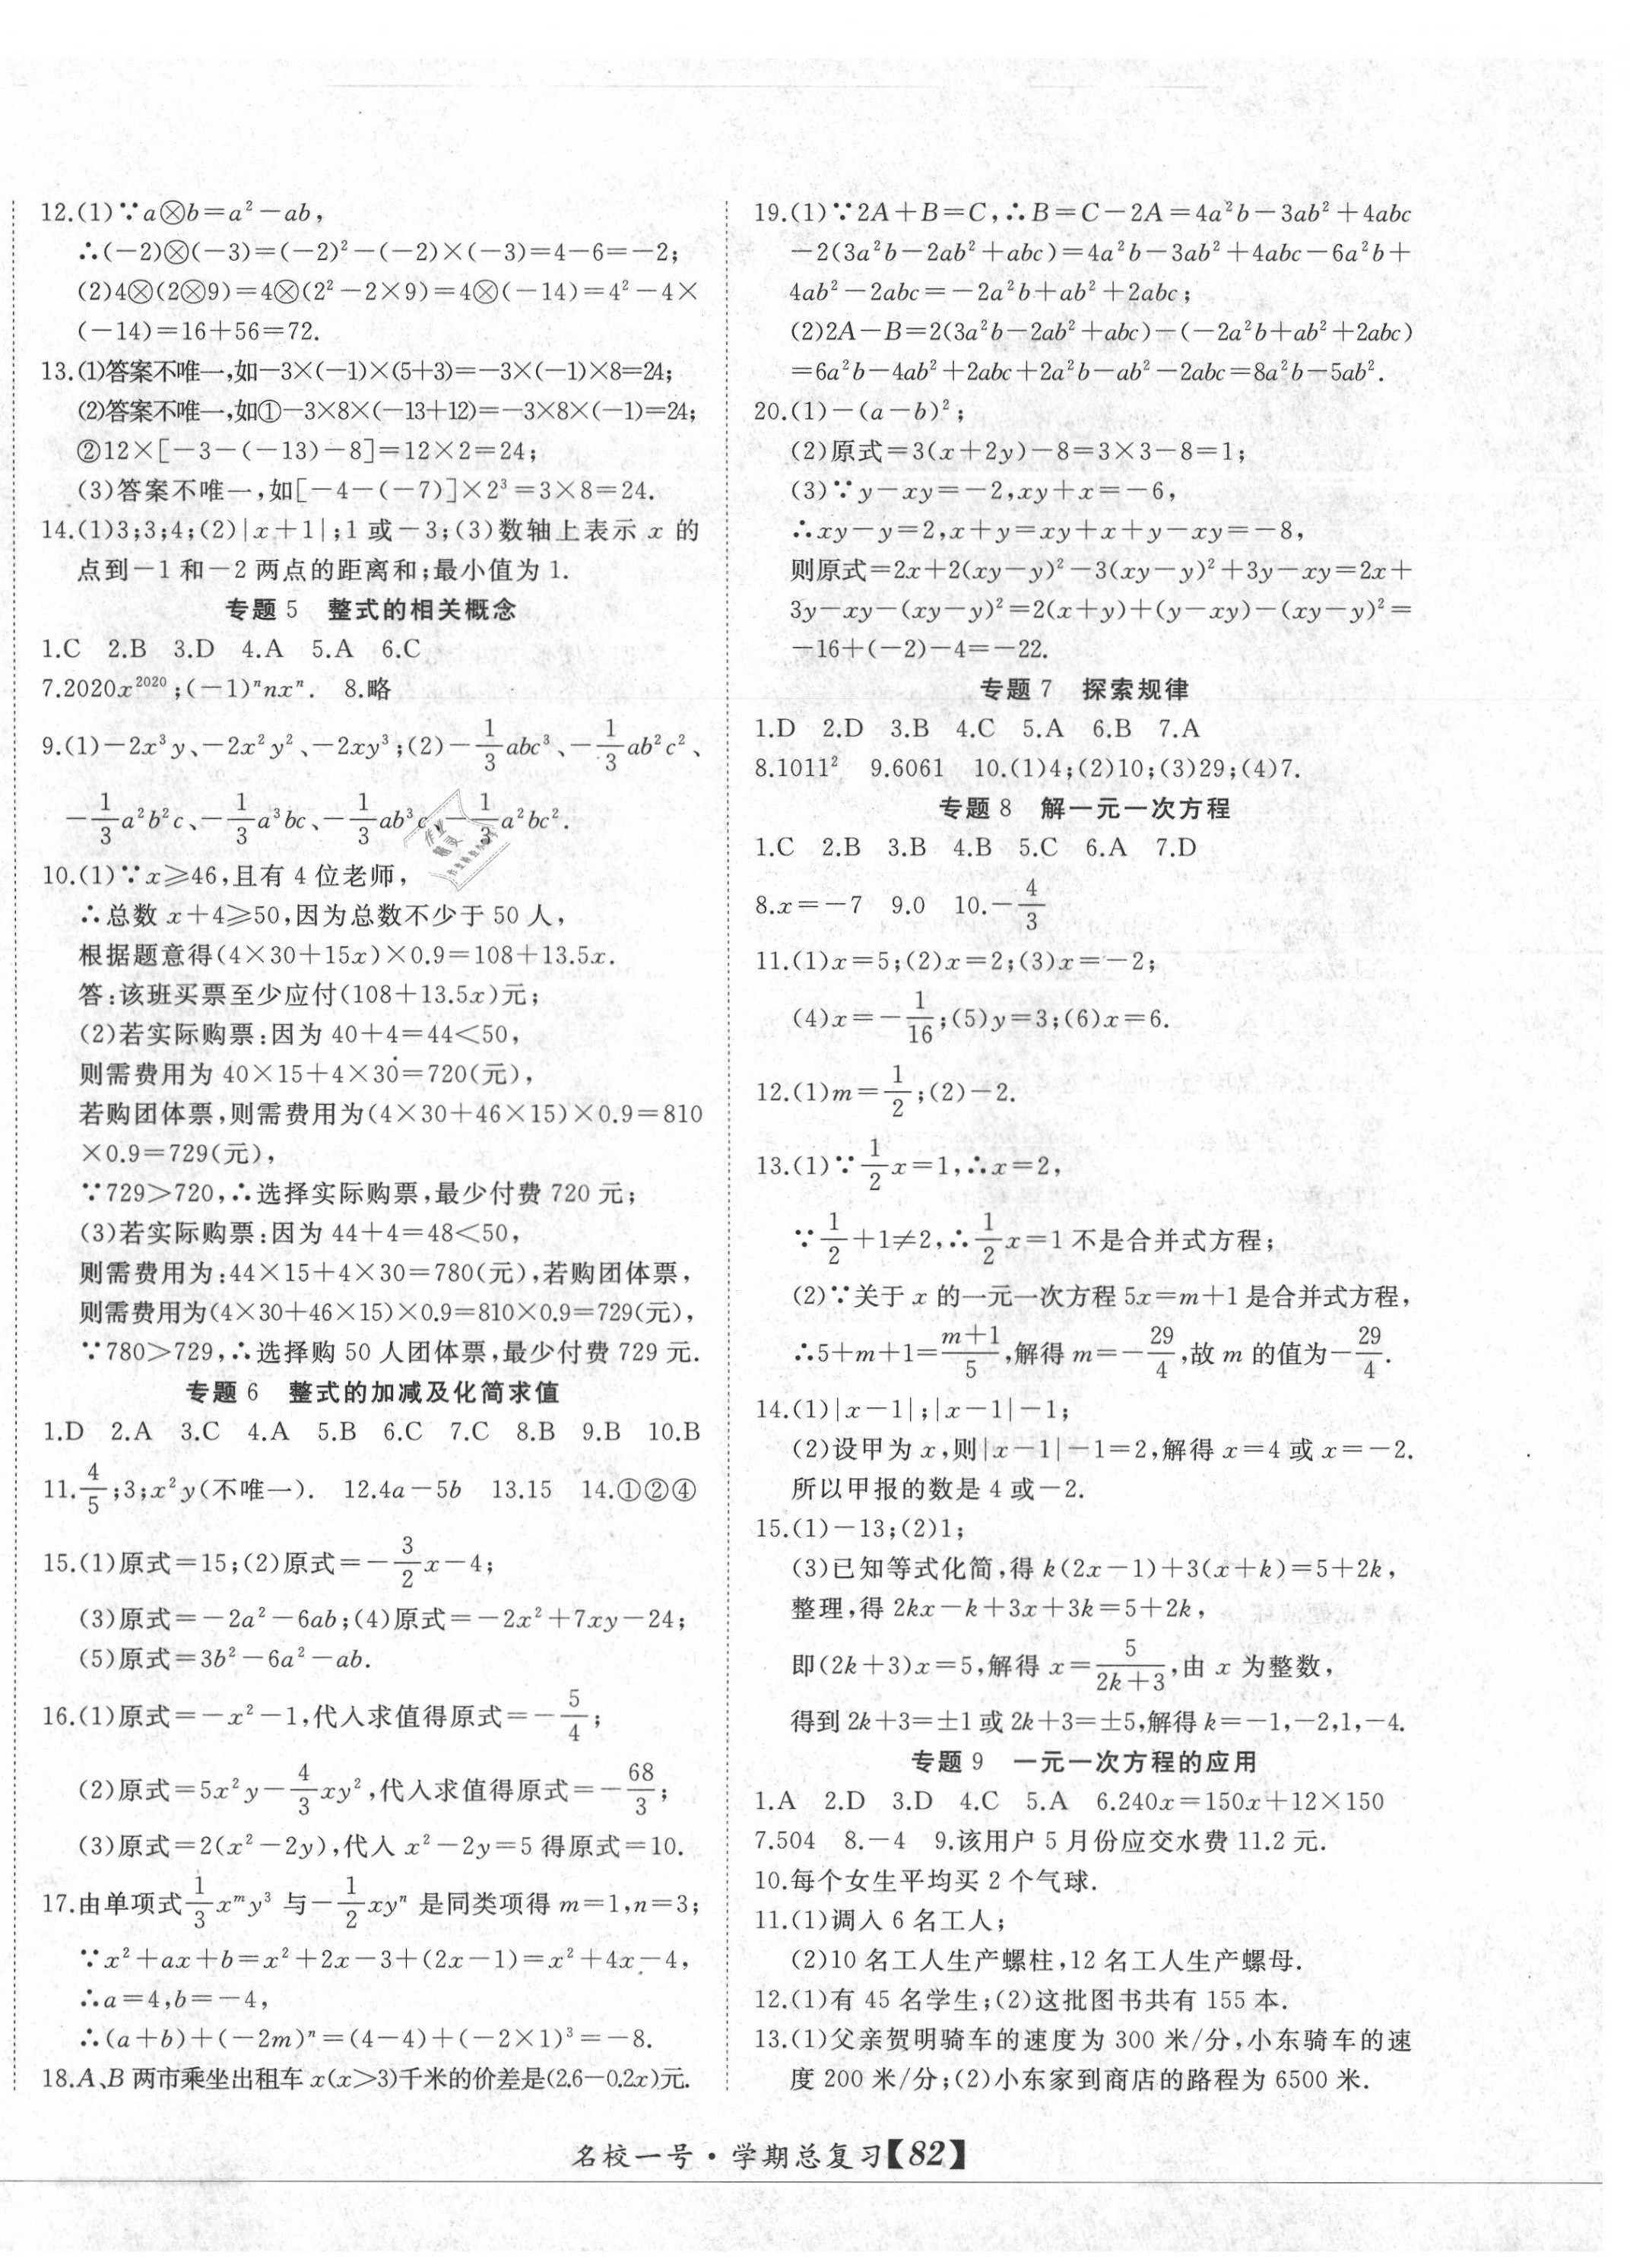 12.(1)∵a⊗b=a²-ab,
∴(-2)⊗(-3)=(-2)²-(-2)×(-3)=4-6=-2;
(2)4⊗(2⊗9)=4⊗(2²-2×9)=4⊗(-14)=4²-4×
(-14)=16+56=72.
13.(1)答案不唯一,如-3×(-1)×(5+3)=-3×(-1)×8=24;
(2)答案不唯一,如①-3×8×(-13+12)=-3×8×(-1)=24;
②12×[-3-(-13)-8]=12×2=24;
(3)答案不唯一,如[-4-(-7)]×2³=3×8=24.
14.(1)3;3;4;(2)|x+1|;1或-3;(3)数轴上表示 x 的
点到-1和-2两点的距离和;最小值为1.
专题5 整式的相关概念
1.C 2.B 3.D 4.A 5.A 6.C
7.2020x²⁰²⁰;(-1)ⁿnxⁿ. 8.略
9.(1)-2x³y、-2x²y²、-2xy³;(2)-1/3abc³、-1/3ab²c²、
-1/3a²b²c、-1/3a³bc、-1/3ab³c、-1/3a²bc².
10.(1)∵x≥46,且有4位老师,
∴总数x+4≥50,因为总数不少于50人,
根据题意得(4×30+15x)×0.9=108+13.5x.
答:该班买票至少应付(108+13.5x)元;
(2)若实际购票:因为40+4=44<50,
则需费用为40×15+4×30=720(元),
若购团体票,则需费用为(4×30+46×15)×0.9=810
×0.9=729(元),
∵729>720,∴选择实际购票,最少付费720元;
(3)若实际购票:因为44+4=48<50,
则需费用为:44×15+4×30=780(元),若购团体票,
则需费用为(4×30+46×15)×0.9=810×0.9=729(元),
∵780>729,∴选择购50人团体票,最少付费729元.
专题6 整式的加减及化简求值
1.D 2.A 3.C 4.A 5.B 6.C 7.C 8.B 9.B 10.B
11.4/5;3;x²y(不唯一). 12.4a-5b 13.15 14.①②④
15.(1)原式=15;(2)原式=-3/2x-4;
(3)原式=-2a²-6ab;(4)原式=-2x²+7xy-24;
(5)原式=3b²-6a²-ab.
16.(1)原式=-x²-1,代入求值得原式=-5/4;
(2)原式=5x²y-4/3xy²,代入求值得原式=-68/3;
(3)原式=2(x²-2y),代入x²-2y=5得原式=10.
17.由单项式1/3xᵐy³与-1/2xyⁿ是同类项得m=1,n=3;
∵x²+ax+b=x²+2x-3+(2x-1)=x²+4x-4,
∴a=4,b=-4,
∴(a+b)+(-2m)ⁿ=(4-4)+(-2×1)³=-8.
18.A、B两市乘坐出租车x(x>3)千米的价差是(2.6-0.2x)元.
19.(1)∵2A+B=C,∴B=C-2A=4a²b-3ab²+4abc
-2(3a²b-2ab²+abc)=4a²b-3ab²+4abc-6a²b+
4ab²-2abc=-2a²b+ab²+2abc;
(2)2A-B=2(3a²b-2ab²+abc)-(-2a²b+ab²+2abc)
=6a²b-4ab²+2abc+2a²b-ab²-2abc=8a²b-5ab².
20.(1)-(a-b)²;
(2)原式=3(x+2y)-8=3×3-8=1;
(3)∵y-xy=-2,xy+x=-6,
∴xy-y=2,x+y=xy+x+y-xy=-8,
则原式=2x+2(xy-y)²-3(xy-y)²+3y-xy=2x+
3y-xy-(xy-y)²=2(x+y)+(y-xy)-(xy-y)²=
-16+(-2)-4=-22.
专题7 探索规律
1.D 2.D 3.B 4.C 5.A 6.B 7.A
8.1011² 9.6061 10.(1)4;(2)10;(3)29;(4)7.
专题8 解一元一次方程
1.C 2.B 3.B 4.B 5.C 6.A 7.D
8.x=-7 9.0 10.-4/3
11.(1)x=5;(2)x=2;(3)x=-2;
(4)x=-1/16;(5)y=3;(6)x=6.
12.(1)m=1/2;(2)-2.
13.(1)∵1/2x=1,∴x=2,
∵1/2+1≠2,∴1/2x=1不是合并式方程;
(2)∵关于x的一元一次方程5x=m+1是合并式方程,
∴5+m+1=(m+1)/5,解得m=-29/4,故m的值为-29/4.
14.(1)|x-1|;|x-1|-1;
(2)设甲为x,则|x-1|-1=2,解得x=4或x=-2.
所以甲报的数是4或-2.
15.(1)-13;(2)1;
(3)已知等式化简,得k(2x-1)+3(x+k)=5+2k,
整理,得2kx-k+3x+3k=5+2k,
即(2k+3)x=5,解得x=5/(2k+3),由x为整数,
得到2k+3=±1或2k+3=±5,解得k=-1,-2,1,-4.
专题9 一元一次方程的应用
1.A 2.D 3.D 4.C 5.A 6.240x=150x+12×150
7.504 8.-4 9.该用户5月份应交水费11.2元.
10.每个女生平均买2个气球.
11.(1)调入6名工人;
(2)10名工人生产螺柱,12名工人生产螺母.
12.(1)有45名学生;(2)这批图书共有155本.
13.(1)父亲贺明骑车的速度为300米/分,小东骑车的速
度200米/分;(2)小东家到商店的路程为6500米.
名校一号·学期总复习【82】